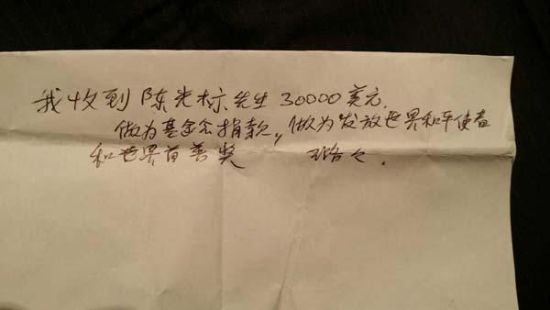 我收到陈光标先生30000美元.
做为基金会捐款,做为发放世界和平使者
和世界首善奖 璐之.